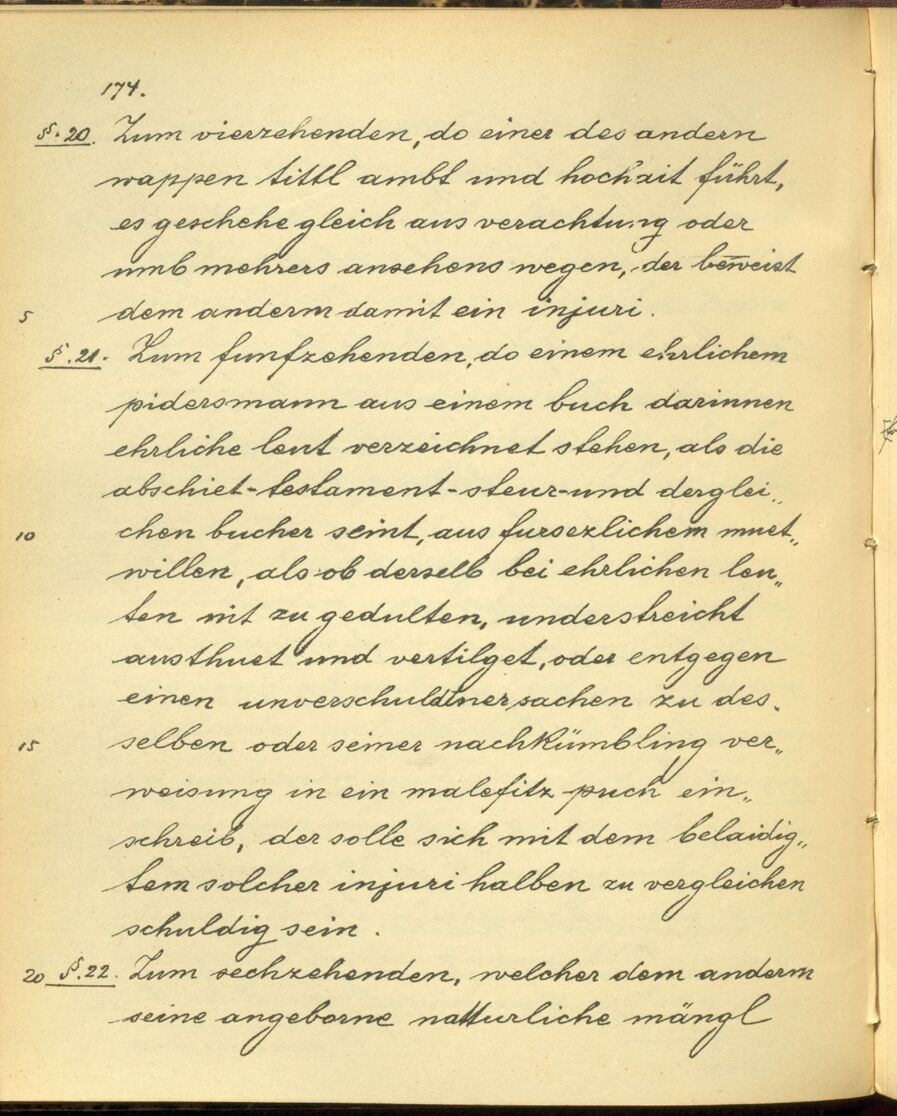 174.
§. 20. Zum vierzehenden, do einer des andern
wappen tittl ambt und hochait führt,
es geschehe gleich aus verachtung oder
umb mehrers ansehens wegen, der beweist
5 dem anderm damit ein injuri.
§. 21. Zum funfzehenden, do einem ehrlichem
pidersmann aus einem buch darinnen
ehrliche leut verzeichnet stehen, als die
abschiet-testament-steur-und derglei„
10 chen bucher seint, aus fursezlichem muet„
willen, als ob derselb bei ehrlichen leu„
ten nit zu gedulten, understreicht
austhuet und vertilget, oder entgegen
einen unverschuldtner sachen zu des„
15 selben oder seiner nachkümbling ver„
weisung in ein malefitz-puch ein„
schreib, der solle sich mit dem belaidig„
tem solcher injuri halben zu vergleichen
schuldig sein.
20 §. 22. Zum sechzehenden, welcher dem anderm
seine angeborne natturliche mängl